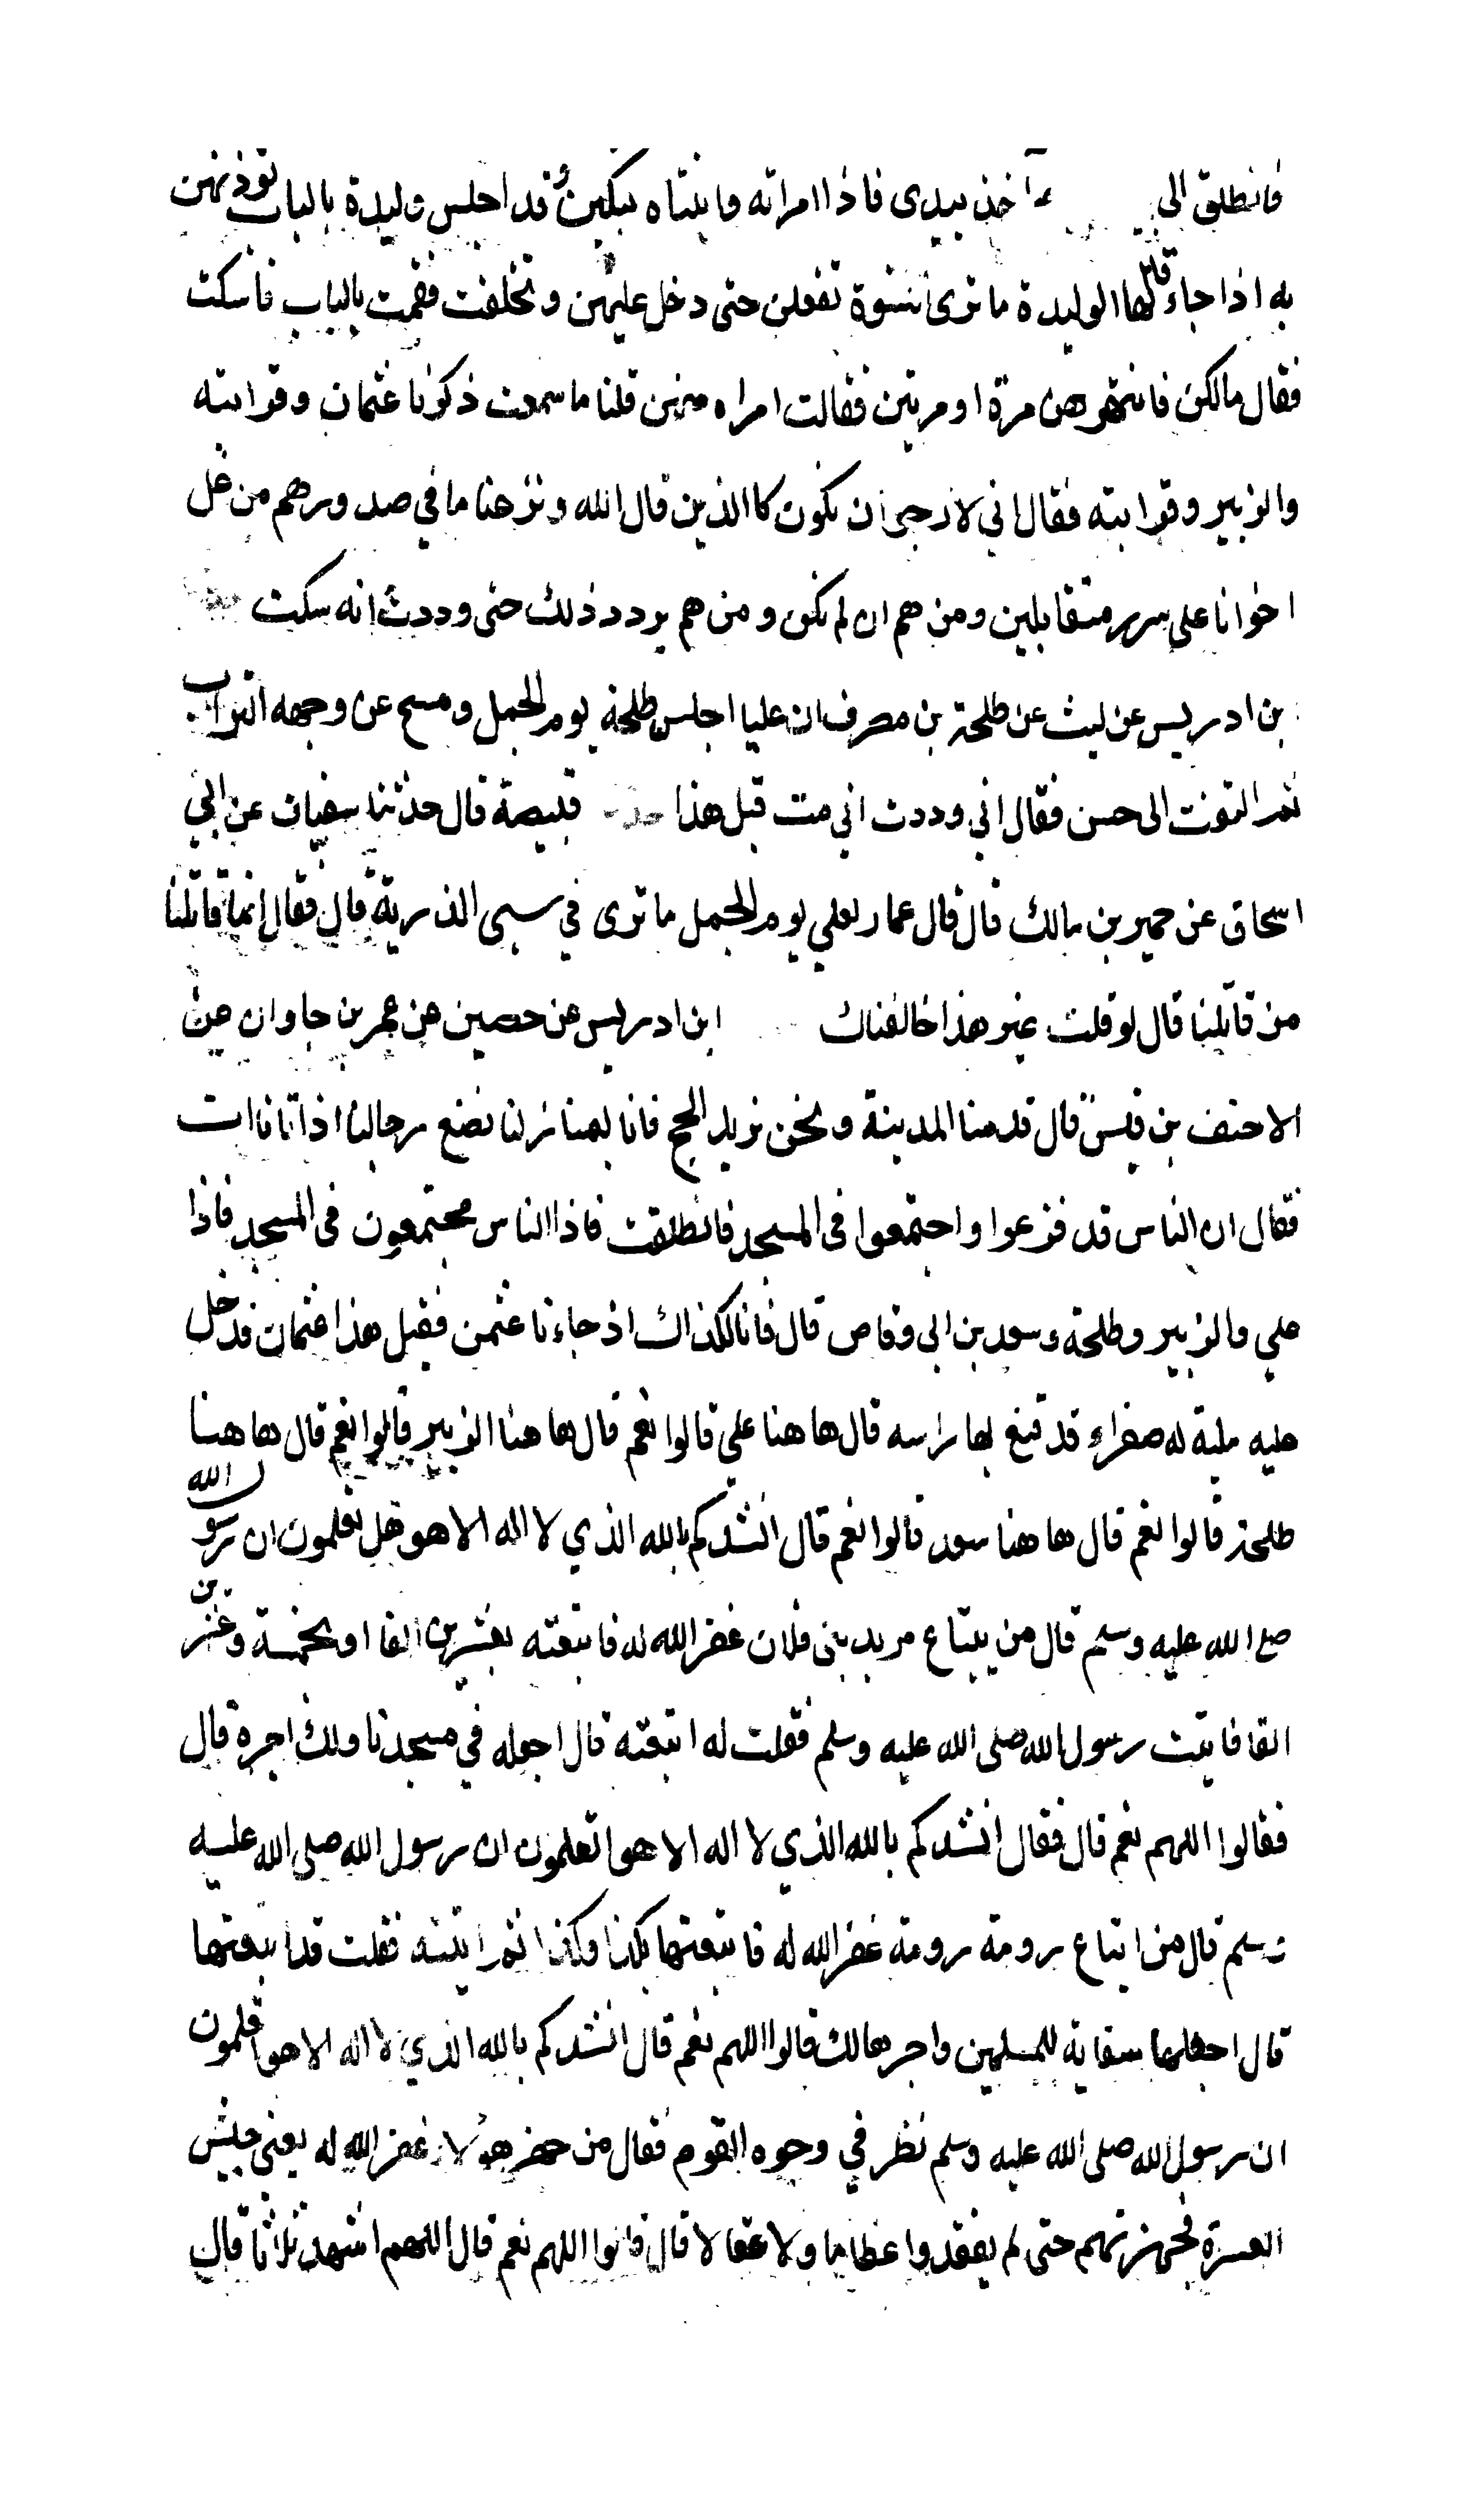 فانطلق الى اخذ بيدى فاذا امراته وابنتاه يبكين قد اجلس وليدة بالباب توذنهن
به اذا جاء قال لها الوليدة ما ترى النسوة تفعلن حتى دخل عليهن وتخلفت فقمت بالباب فاسكت
فقال مالكن فانتهرهن مرة او مرتين فقالت امراه منهن قلنا ما سمعت ذكرنا عثمان وقرابته
والزبير وقرابته فقال اني لارجى ان نكون كالذين قال الله ونزعنا ما في صدورهم من غل
اخوانا على سرر متقابلين ومن هم ان لم نكن ومن هم يردد ذلك حتى وددت انه سكت
بن ادريس عن ليث عن طلحة بن مصرف ان عليا اجلس طلحة يوم الجمل ومسح عن وجهه التراب
ثم التفت الى حسن فقال اني وددت اني مت قبل هذا حدثنا قبيصة قال حدثنا سفيان عن ابي
اسحاق عن حمير بن مالك قال قال عمار لعلي يوم الجمل ما ترى في سبى الذرية قال فقال انما قاتلنا
من قاتلنا قال لو قلت غير هذا خالفناك ابن ادريس عن حصين عن عمر بن جاوان عن
الاحنف بن قيس قال قدمنا المدينة ونحن نريد الحج فانا لمنازلنا نضع رحالنا اذ اتانا ات
فقال ان الناس قد فزعوا واجتمعوا فى المسجد فانطلقت فاذا الناس مجتمعون فى المسجد فاذا
علي والزبير وطلحة وسعد بن ابى وقاص قال فانا لكذاك اذ جاءنا عثمن فقيل هذا عثمان فدخل
عليه ملية له صفراء قد قنع بها راسه قال ها هنا علي قالوا نعم قال ها هنا الزبير قالوا نعم قال ها هنا
طلحة قالوا نعم قال ها هنا سعد قالوا نعم قال انشدكم بالله الذي لا اله الا هو هل تعلمون ان رسول الله
صلى الله عليه وسلم قال من يبتاع مربد بنى فلان غفر الله له فابتعته بعشرين الفا او بخمسة وعشرين
الفا فاتيت رسول الله صلى الله عليه وسلم فقلت له ابتعته قال اجعله في مسجدنا ولك اجره قال
فقالوا اللهم نعم قال فقال انشدكم بالله الذي لا اله الا هو اتعلمون ان رسول الله صلى الله عليه
وسلم قال من ابتاع رومة رومة غفر الله له فابتعتها بكذا وكذا ثم اتيته فقلت قد ابتعتها
قال اجعلها سقاية للمسلمين واجرها لك قالوا اللهم نعم قال انشدكم بالله الذي لا اله الا هو اتعلمون
ان رسول الله صلى الله عليه وسلم نظر في وجوه القوم فقال من جهز هؤلاء غفر الله له يعنى جيش
العسرة فجهزتهم حتى لم يفقدوا خطاما ولا عقالا قال قالوا اللهم نعم قال اللهم اشهد ثلاثا قال